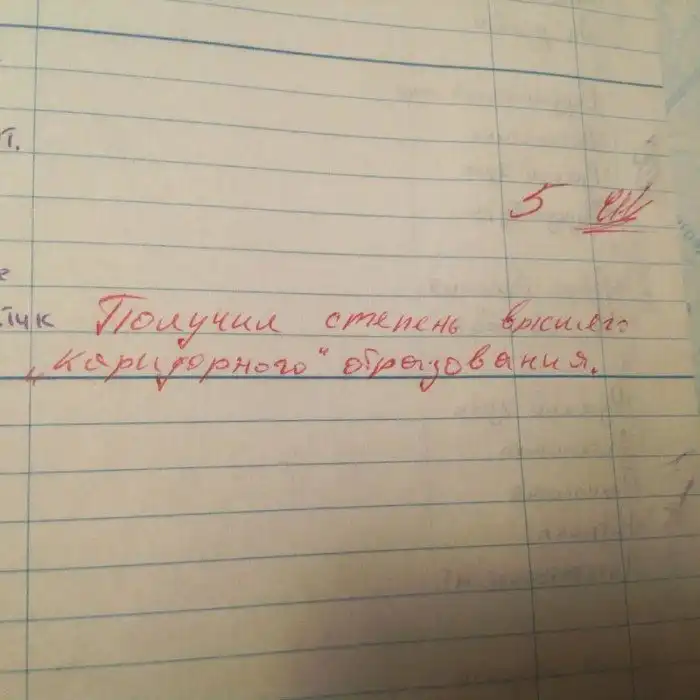 5
Получил степень высшего
„Каридорного“ образования.